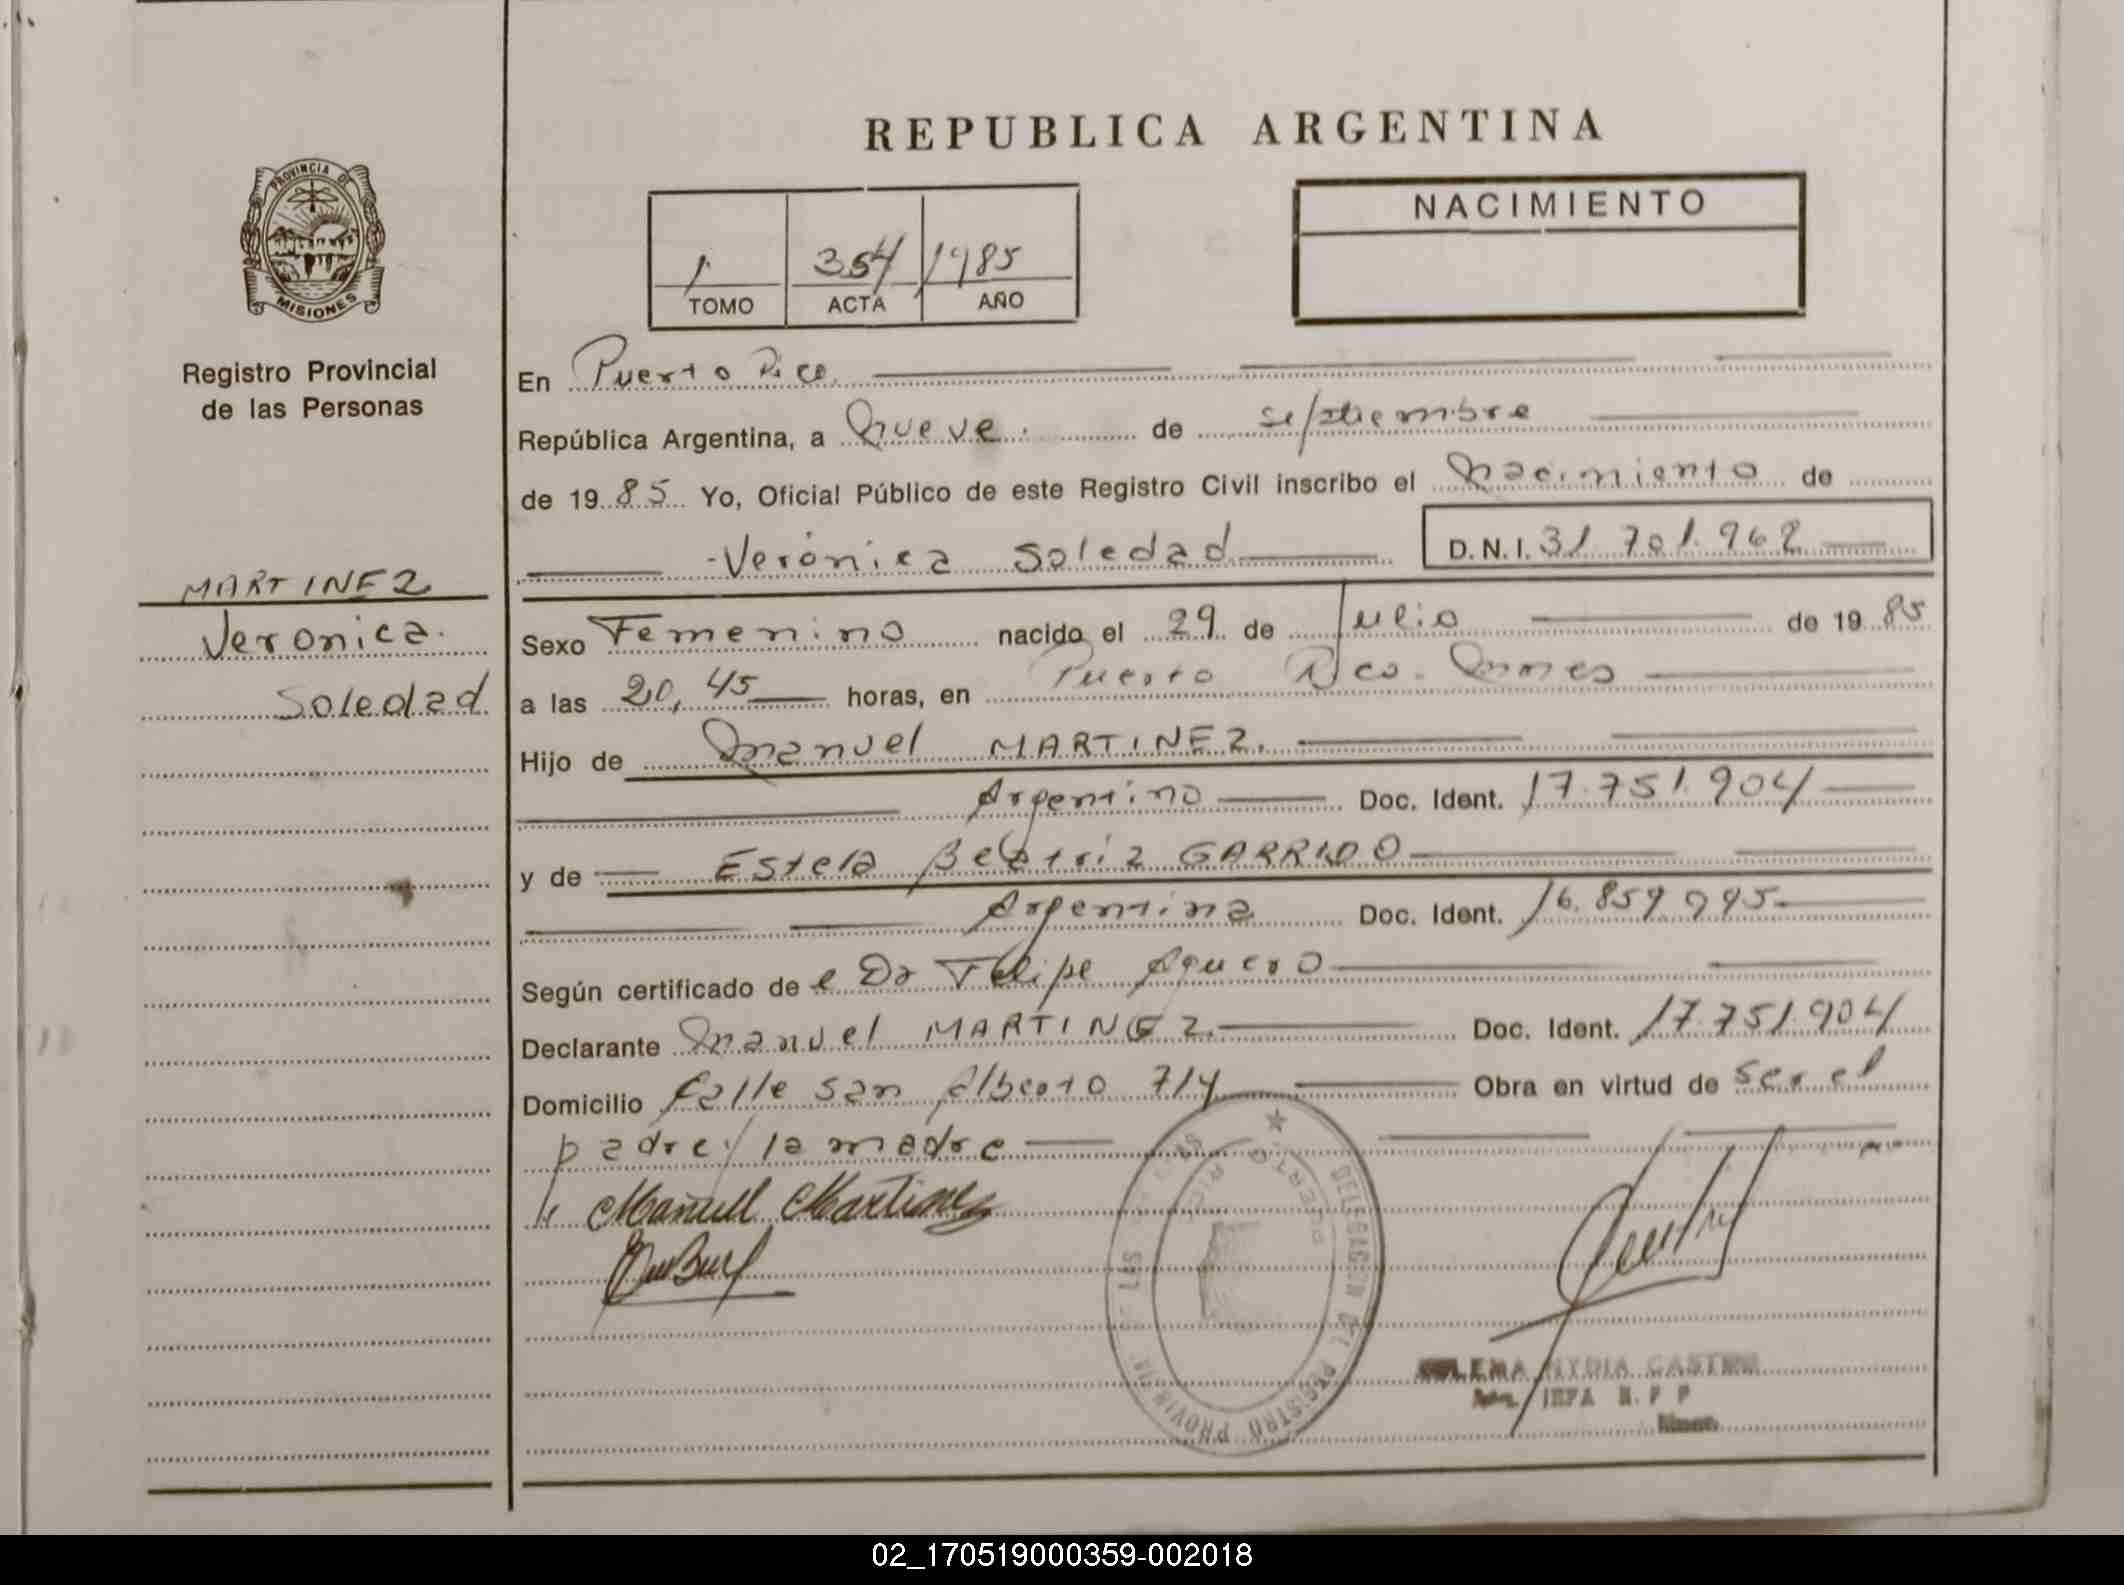 REPUBLICA ARGENTINA
PROVINCIA DE
MISIONES
Registro Provincial
de las Personas
MARTINEZ
Veronica
Soledad
1 354 1985
TOMO ACTA AÑO
NACIMIENTO
En Puerto Rico
República Argentina, a nueve de septiembre
de 1985 Yo, Oficial Público de este Registro Civil inscribo el nacimiento de
Verónica Soledad D.N.I. 31.701.962
Sexo Femenino nacido el 29 de Julio de 1985
a las 20,45 horas, en Puerto Rico
Hijo de Manuel MARTINEZ
Argentino Doc. Ident. 17.751.904
y de Estela Beatriz GARRIDO
Argentina Doc. Ident. 16.859.995
Según certificado de el Dr Felipe Aguero
Declarante Manuel MARTINEZ Doc. Ident. 17.751.904
Domicilio Calle San Alberto 714 Obra en virtud de ser el
padre y la madre
Manuel Martinez
DELEGACION DEL REGISTRO PROVINCIAL DE LAS
PUERTO RICO
NYDIA
JEFA R.P.P
02_170519000359-002018